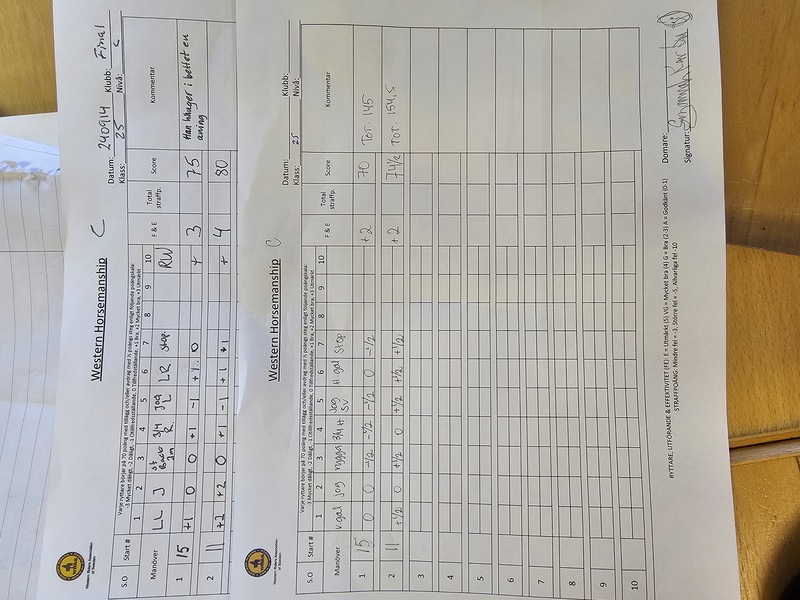 Western Riders Association
of Sweden
Western Horsemanship C
Datum: 240914 Klubb: Final
Klass: 25 Nivå: C
Varje ryttare börjar på 70 poäng med tillägg och/eller avdrag med ½ poängs steg enligt följande poängskala:
-3 Mycket dåligt, -2 Dåligt, -1 Otillfredsställande, 0 Tillfredsställande, +1 Bra, +2 Mycket bra, +3 Utmärkt
S.O Start # 1 2 3 4 5 6 7 8 9 10 F & E Total straffp. Score Kommentar
Manöver LL J st Back 2m 3/4 R. Jog L LR Stop RW
1 15 +1 0 0 +1 -1 +1 0 + 3 75 Han hänger i bettet en aning
2 11 +2 +2 0 +1 -1 +1 +1 + 4 80
Western Riders Association
of Sweden
Western Horsemanship C
Datum: Klubb:
Klass: 25 Nivå:
Varje ryttare börjar på 70 poäng med tillägg och/eller avdrag med ½ poängs steg enligt följande poängskala:
-3 Mycket dåligt, -2 Dåligt, -1 Otillfredsställande, 0 Tillfredsställande, +1 Bra, +2 Mycket bra, +3 Utmärkt
S.O Start # 1 2 3 4 5 6 7 8 9 10 F & E Total straffp. Score Kommentar
Manöver v.gal Jog rygga 3/4 H Jog SV H gal Stop
1 15 0 0 -1/2 -1/2 -1/2 0 -1/2 +2 70 TOT. 145
2 11 +1/2 0 +1/2 0 +1/2 +1/2 +1/2 +2 74 1/2 TOT. 154,5
3
4
5
6
7
8
9
10
RYTTARE, UTFÖRANDE & EFFEKTIVITET (FE): E = Utmärkt (5) VG = Mycket bra (4) G = Bra (2-3) A = Godkänt (0-1)
STRAFFPOÄNG: Mindre fel = -3, Större fel = -5, Allvarliga fel -10
Domare:
Signatur: